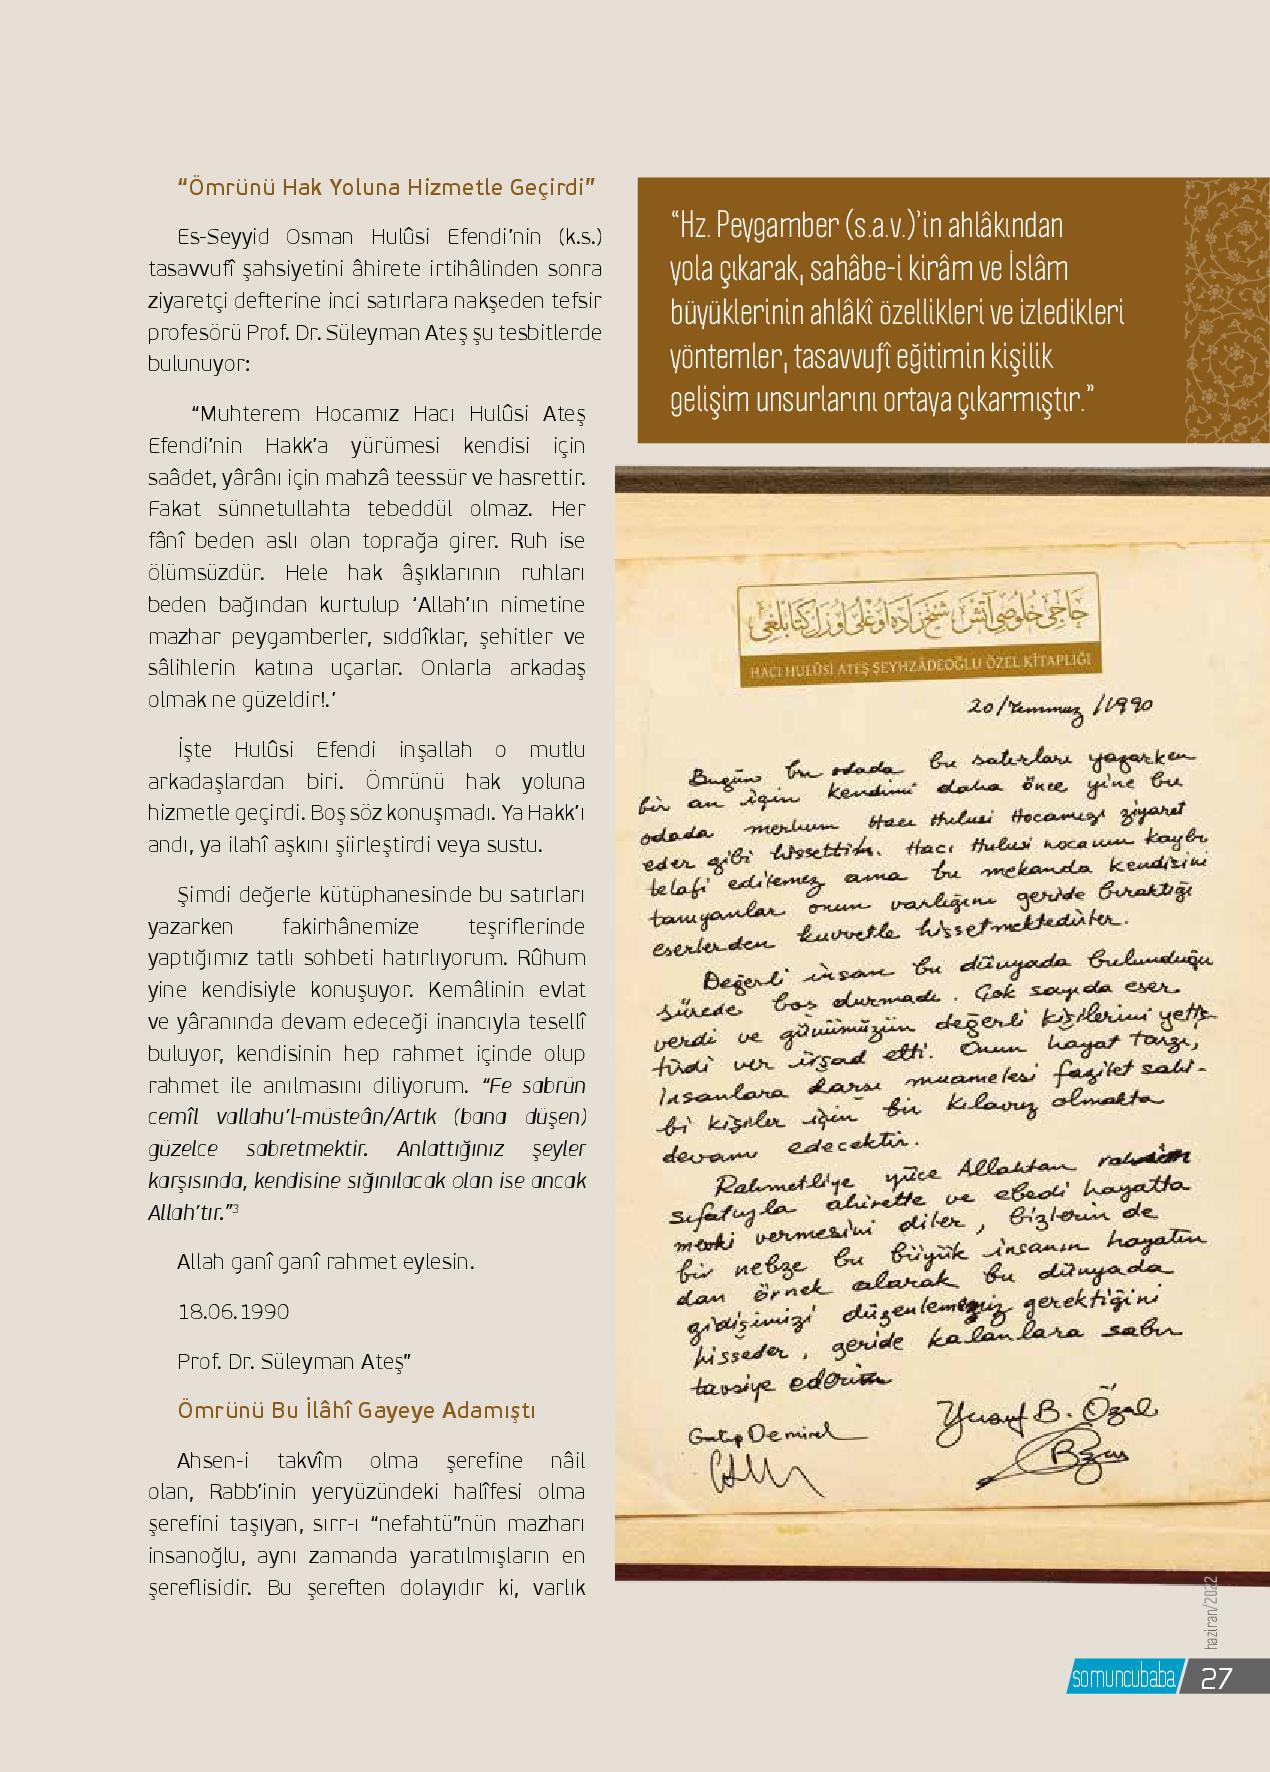 “Ömrünü Hak Yoluna Hizmetle Geçirdi”
Es-Seyyid Osman Hulûsi Efendi’nin (k.s.)
tasavvufî şahsiyetini âhirete irtihâlinden sonra
ziyaretçi defterine inci satırlara nakşeden tefsir
profesörü Prof. Dr. Süleyman Ateş şu tesbitlerde
bulunuyor:
“Muhterem Hocamız Hacı Hulûsi Ateş
Efendi’nin Hakk’a yürümesi kendisi için
saâdet, yârânı için mahzâ teessür ve hasrettir.
Fakat sünnetullahta tebeddül olmaz. Her
fânî beden aslı olan toprağa girer. Ruh ise
ölümsüzdür. Hele hak âşıklarının ruhları
beden bağından kurtulup ‘Allah’ın nimetine
mazhar peygamberler, sıddîklar, şehitler ve
sâlihlerin katına uçarlar. Onlarla arkadaş
olmak ne güzeldir!.’
İşte Hulûsi Efendi inşallah o mutlu
arkadaşlardan biri. Ömrünü hak yoluna
hizmetle geçirdi. Boş söz konuşmadı. Ya Hakk’ı
andı, ya ilahî aşkını şiirleştirdi veya sustu.
Şimdi değerle kütüphanesinde bu satırları
yazarken fakirhânemize teşriflerinde
yaptığımız tatlı sohbeti hatırlıyorum. Rûhum
yine kendisiyle konuşuyor. Kemâlinin evlat
ve yâranında devam edeceği inancıyla tesellî
buluyor, kendisinin hep rahmet içinde olup
rahmet ile anılmasını diliyorum. “Fe sabrün
cemîl vallahu’l-müsteân/Artık (bana düşen)
güzelce sabretmektir. Anlattığınız şeyler
karşısında, kendisine sığınılacak olan ise ancak
Allah’tır.”3
Allah ganî ganî rahmet eylesin.
18.06.1990
Prof. Dr. Süleyman Ateş”
Ömrünü Bu İlâhî Gayeye Adamıştı
Ahsen-i takvîm olma şerefine nâil
olan, Rabb’inin yeryüzündeki halîfesi olma
şerefini taşıyan, sırr-ı “nefahtü”nün mazharı
insanoğlu, aynı zamanda yaratılmışların en
şereflisidir. Bu şereften dolayıdır ki, varlık
“Hz. Peygamber (s.a.v.)’in ahlâkından
yola çıkarak, sahâbe-i kirâm ve İslâm
büyüklerinin ahlâkî özellikleri ve izledikleri
yöntemler, tasavvufî eğitimin kişilik
gelişim unsurlarını ortaya çıkarmıştır.”
حاجى خلوصى آتش شيخزاده اوغلى اوزل كتابلغى
HACI HULÛSİ ATEŞ ŞEYHZÂDEOĞLU ÖZEL KİTAPLIĞI
20/Temmuz/1990
Bugün bu odada bu satırları yazarken
bir an için kendimi daha önce yine bu
odada merhum Hacı Hulusi Hocamızı ziyaret
eder gibi hissettim. Hacı Hulusi hocanın kaybı
telafi edilemez ama bu mekanda kendisini
tanıyanlar onun varlığını geride bıraktığı
eserlerden kuvvetle hissetmektedirler.
Değerli insan bu dünyada bulunduğu
sürede boş durmadı. Çok sayıda eser
verdi ve günümüzün değerli kişilerini yetiş-
tirdi ver irşad etti. Onun hayat tarzı,
insanlara karşı muamelesi fazilet sahi-
bi kişiler için bir kılavuz olmakta
devam edecektir.
Rahmetliye yüce Allahtan rahim
sıfatıyla ahirette ve ebedi hayatta
mevki vermesini diler, bizlerin de
bir nebze bu büyük insanın hayatın
dan örnek alarak bu dünyada
gidişimizi düzenlememiz gerektiğini
hisseder, geride kalanlara sabır
tavsiye ederim
Galip Demirel
Yusuf B. Özal
haziran/2022
somuncubaba 27